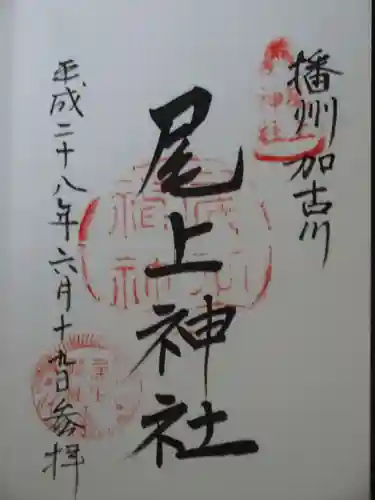 播州加古川
尾上神社
平成二十八年六月十九日参拝